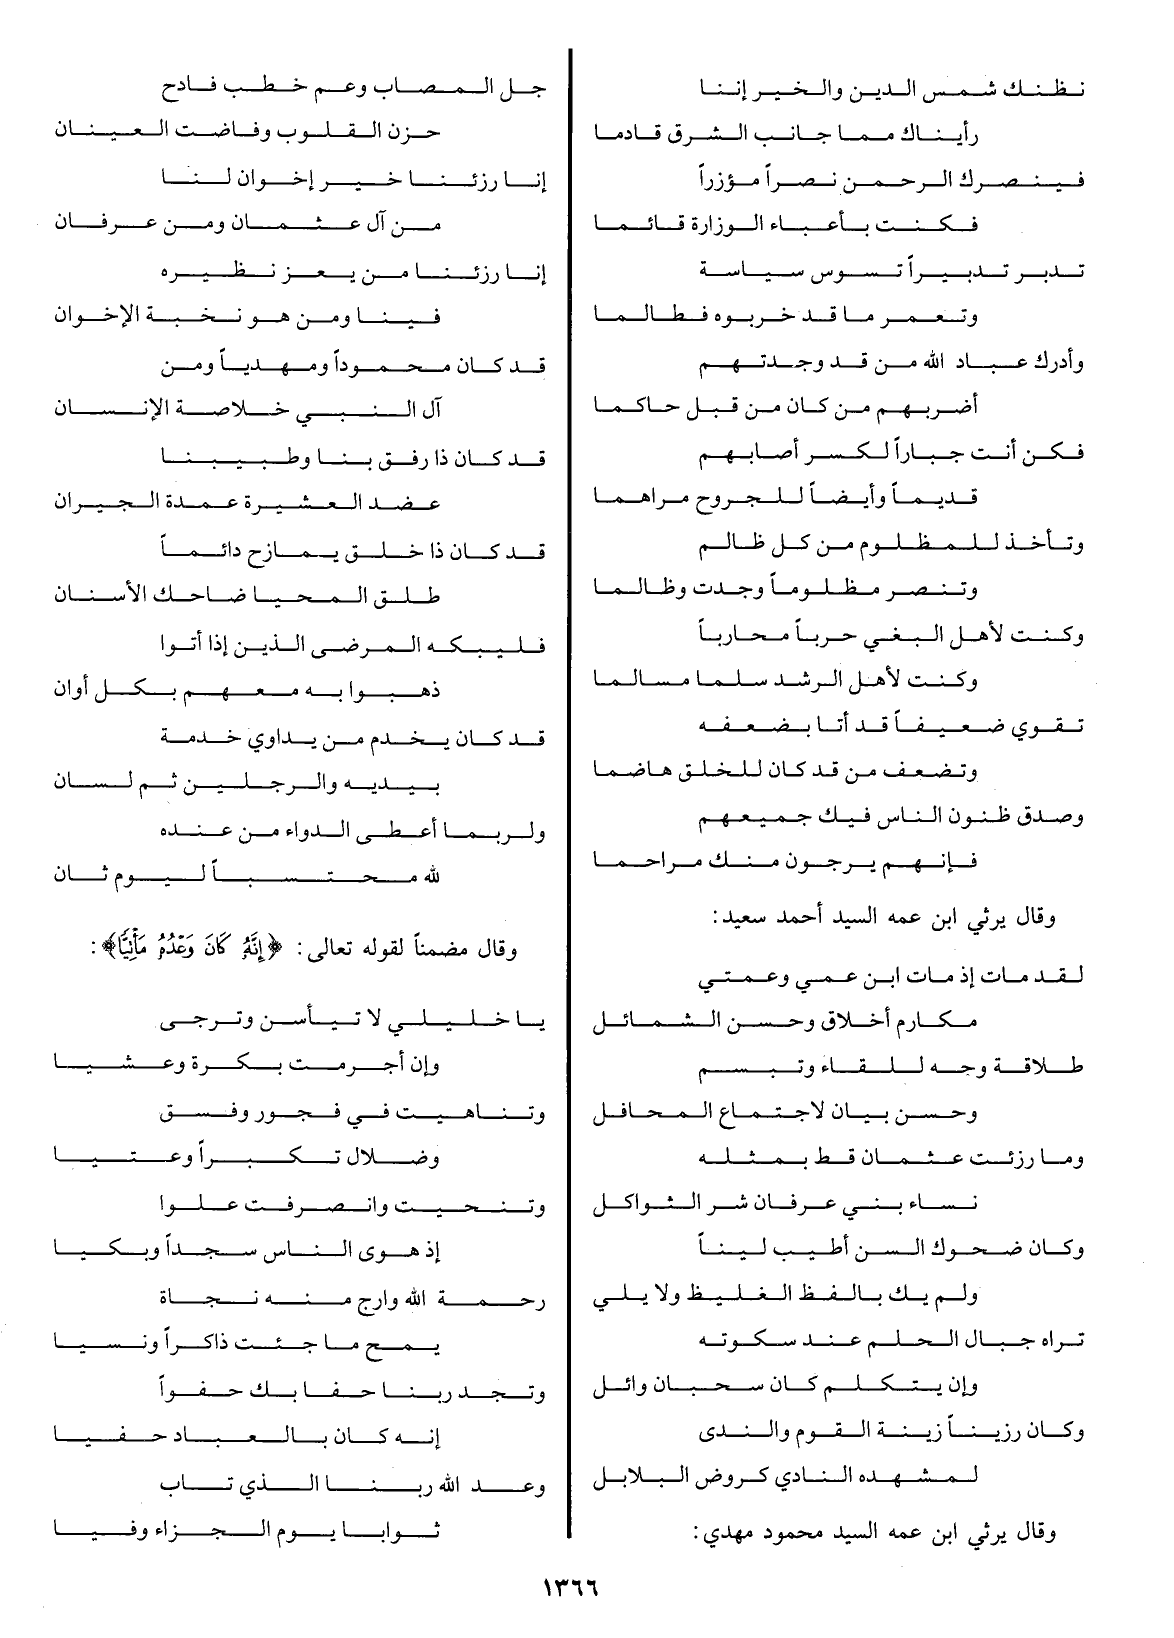 نظنك شمس الدين والخير إننا
رأيناك مما جانب الشرق قادما
فينصرك الرحمن نصراً مؤزراً
فكنت بأعباء الوزارة قائما
تدبر تدبيراً تسوس سياسة
وتعمر ما قد خربوه فطالما
وأدرك عباد الله من قد وجدتهم
أضر بهم من كان من قبل حاكما
فكن أنت جباراً لكسر أصابهم
قديماً وأيضاً للجروح مراهما
وتأخذ للمظلوم من كل ظالم
وتنصر مظلوماً وجدت وظالما
وكنت لأهل البغي حرباً محارباً
وكنت لأهل الرشد سلما مسالما
تقوي ضعيفاً قد أتا بضعفه
وتضعف من قد كان للخلق هاضما
وصدق ظنون الناس فيك جميعهم
فإنهم يرجون منك مراحما
وقال يرثي ابن عمه السيد أحمد سعيد:
لقد مات إذ مات ابن عمي وعمتي
مكارم أخلاق وحسن الشمائل
طلاقة وجه للقاء وتبسم
وحسن بيان لاجتماع المحافل
وما رزئت عثمان قط بمثله
نساء بني عرفان شر الثواكل
وكان ضحوك السن أطيب ليناً
ولم يك بالفظ الغليظ ولا يلي
تراه جبال الحلم عند سكوته
وإن يتكلم كان سحبان وائل
وكان رزيناً زينة القوم والندى
لمشهده النادي كروض البلابل
وقال يرثي ابن عمه السيد محمود مهدي:
جل المصاب وعم خطب فادح
حزن القلوب وفاضت العينان
إنا رزئنا خير إخوان لنا
من آل عثمان ومن عرفان
إنا رزئنا من يعز نظيره
فينا ومن هو نخبة الإخوان
قد كان محموداً ومهدياً ومن
آل النبي خلاصة الإنسان
قد كان ذا رفق بنا وطبيبنا
عضد العشيرة عمدة الجيران
قد كان ذا خلق يمازح دائماً
طلق المحيا ضاحك الأسنان
فليبكه المرضى الذين إذا أتوا
ذهبوا به معهم بكل أوان
قد كان يخدم من يداوي خدمة
بيديه والرجلين ثم لسان
ولربما أعطى الدواء من عنده
لله محتسباً ليوم ثان
وقال مضمناً لقوله تعالى: ﴿إِنَّهُ كَانَ وَعْدُهُ مَأْتِيًّا﴾:
يا خليلي لا تيأسن وترجى
وإن أجرمت بكرة وعشيا
وتناهيت في فجور وفسق
وضلال تكبراً وعتيا
وتنحيت وانصرفت علوا
إذ هوى الناس سجداً وبكيا
رحمة الله وارج منه نجاة
يمح ما جئت ذاكراً ونسيا
وتجد ربنا حفا بك حفواً
إنه كان بالعباد حفيا
وعد الله ربنا الذي تاب
ثوابا يوم الجزاء وفيا
١٣٦٦